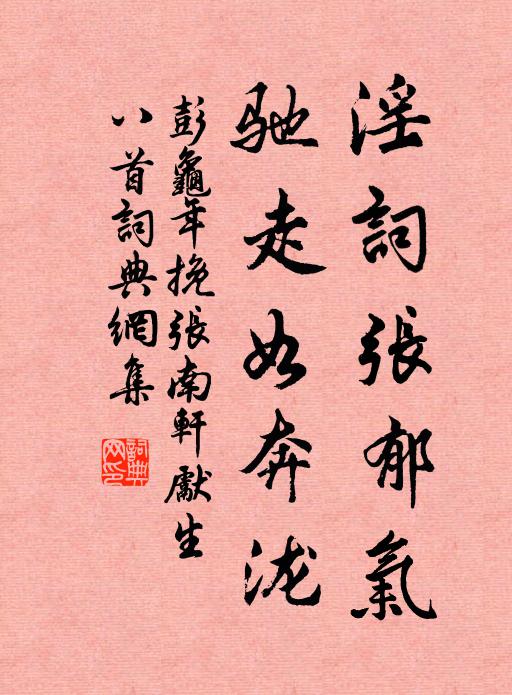 淫詞張郁氣
馳走如奔瀧
彭龜年挽張南軒獻生
八首詞典網集
詞典網印